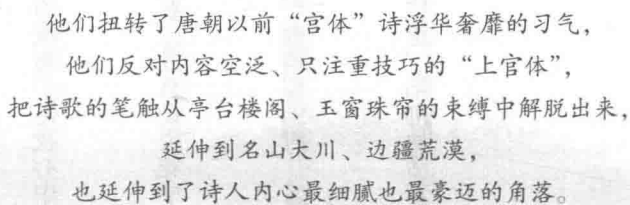 他们扭转了唐朝以前“宫体”诗浮华奢靡的习气，
他们反对内容空泛、只注重技巧的“上官体”，
把诗歌的笔触从亭台楼阁、玉窗珠帘的束缚中解脱出来，
延伸到名山大川、边疆荒漠，
也延伸到了诗人内心最细腻也最豪迈的角落。